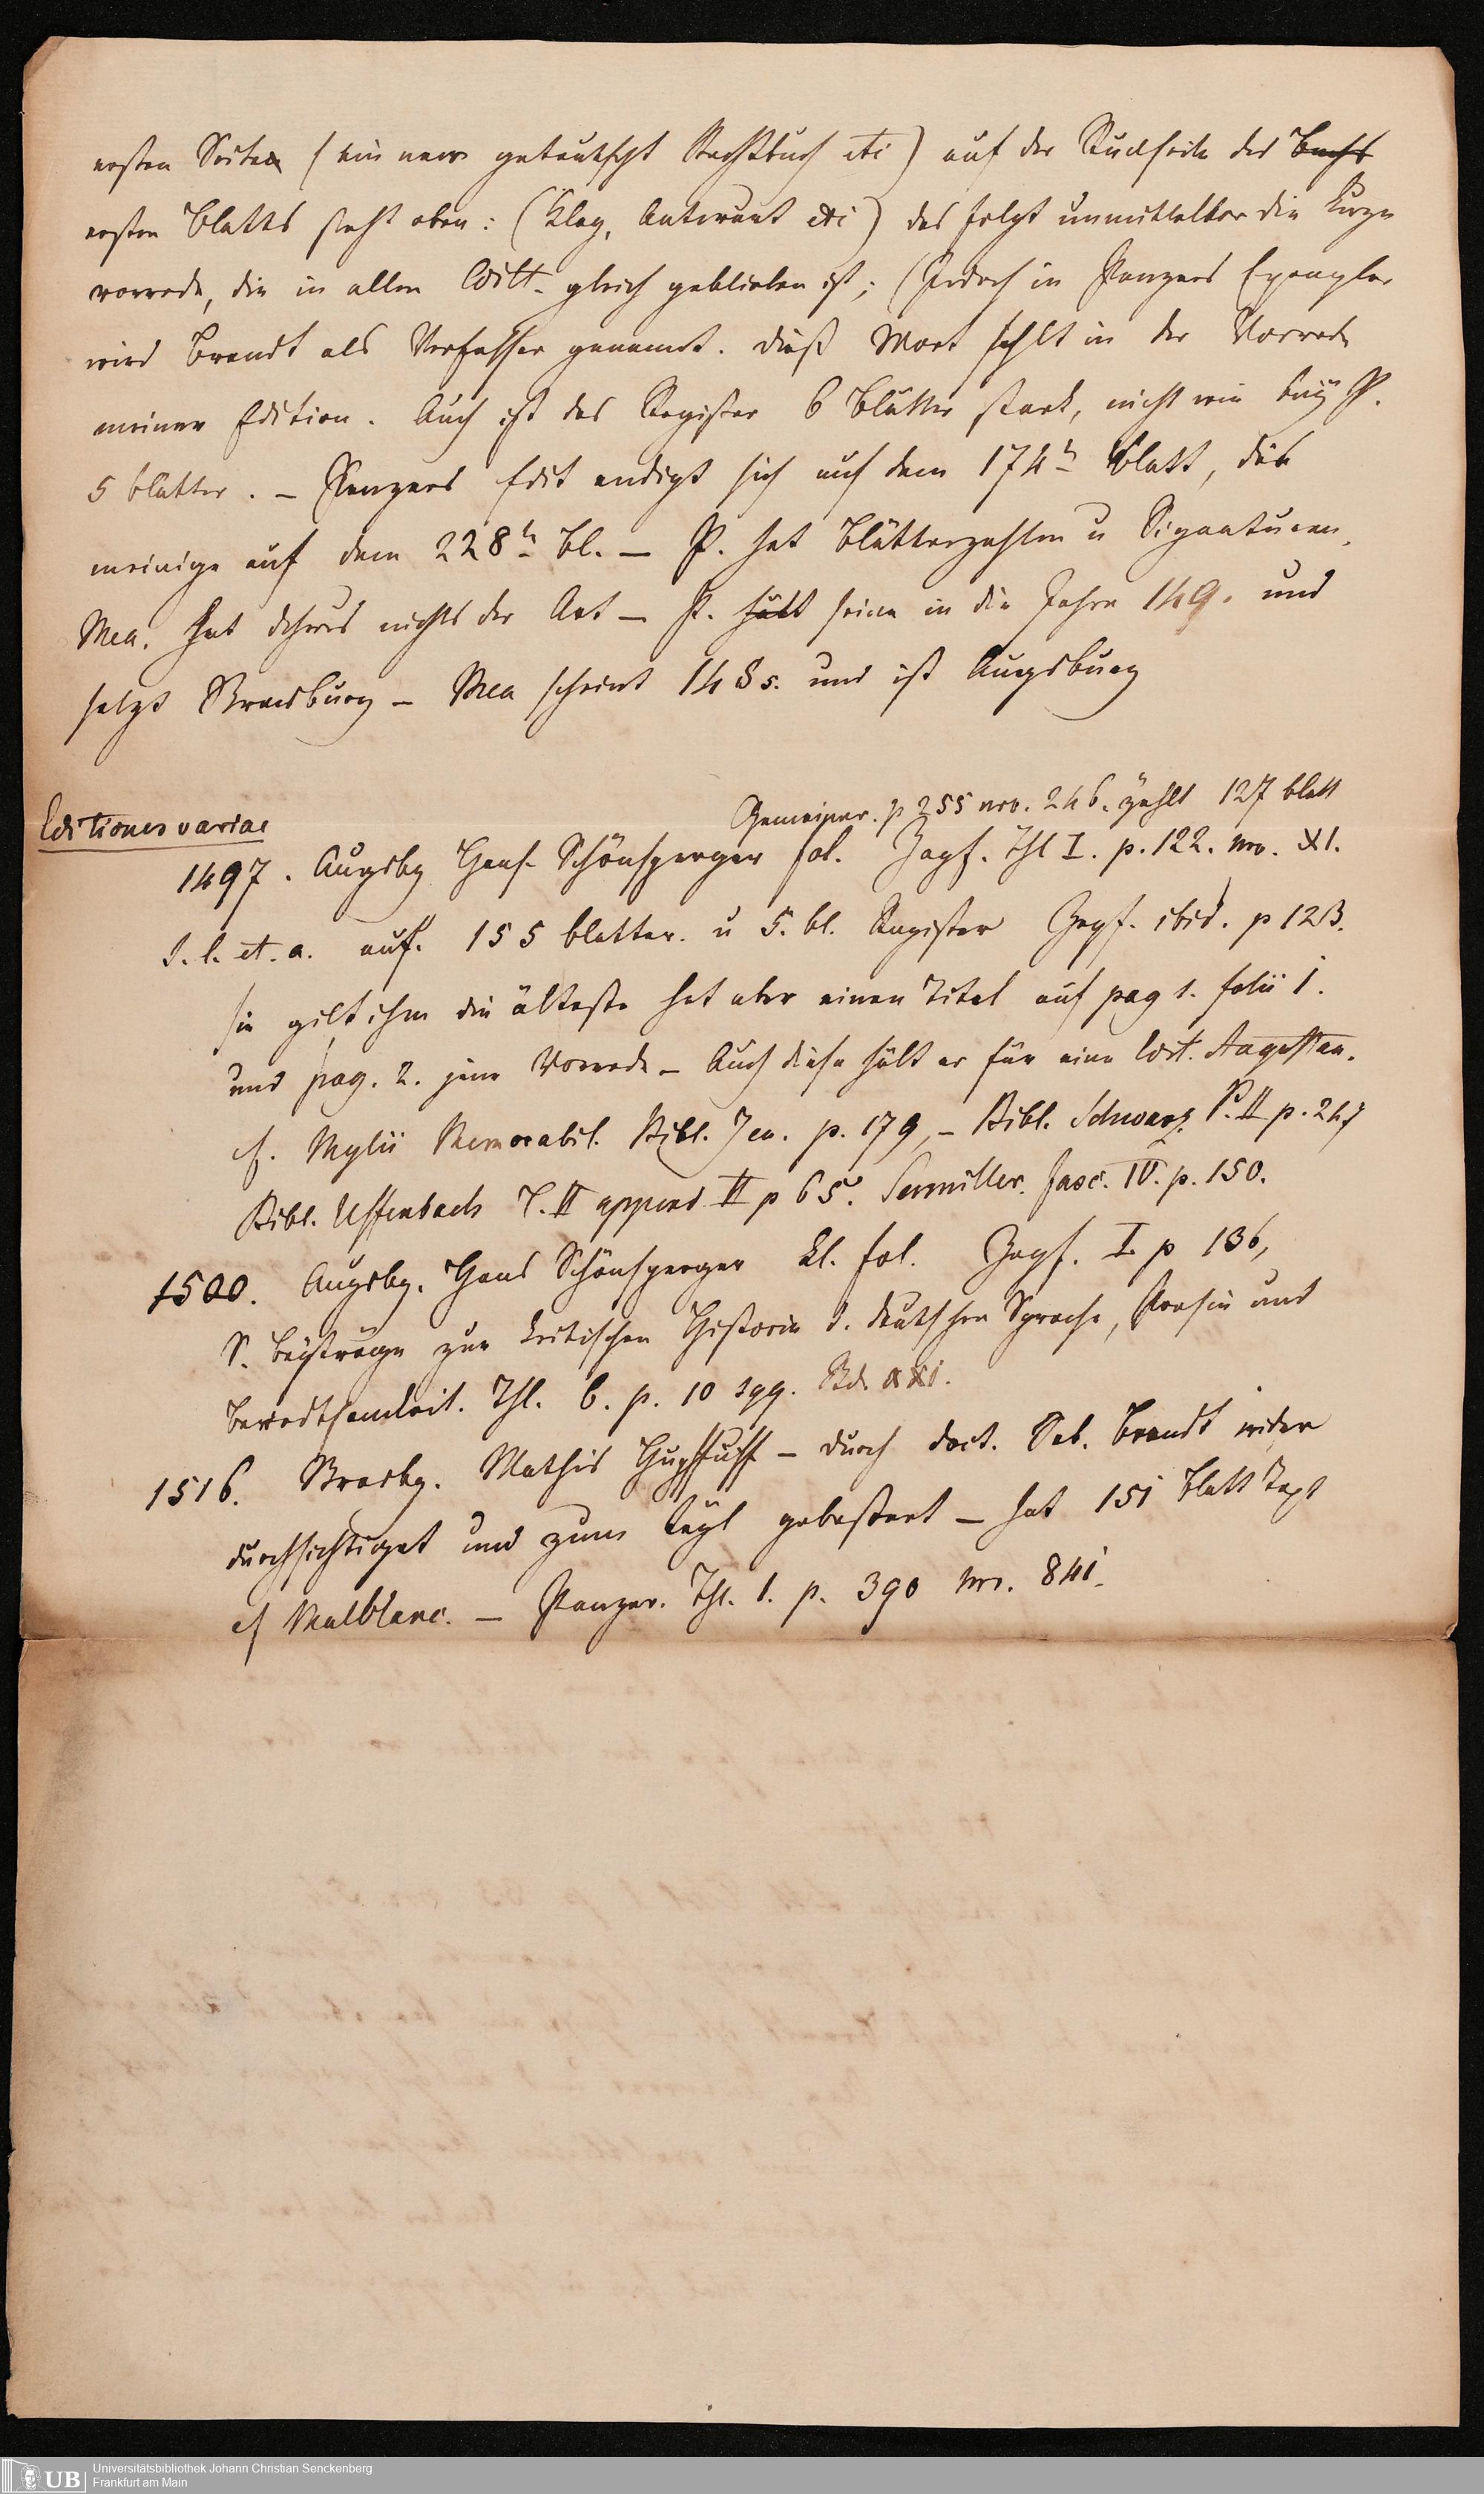 ersten Seite (ein neu geteutscht Rechtbuch etc) auf der Rückseite des Buchs
ersten Blatts steht oben: (Klag, Antwurt etc) das folgt unmittelbar die kurze
vorrede, die in allen Editt. gleich geblieben ist; (Jedoch in Panzers Exemplar
wird Brandt als Verfasser genannt. Dieß Wort fehlt in der Vorrede
meiner Edition. Auch ist das Register 6 Blätter stark, nicht wie bey P.
5 blätter. – Panzers Edit endigt sich auf dem 174n Blatt, die
meinige auf dem 228n Bl. – P. hat Blätterzahlen u Signaturen,
Mea. hat nichts der Art – P. hält seine in die Jahre 149. und
setzt Strasburg – Mea scheint 148s. und ist Augsburg
Editiones variae
p 255 nro. 246. zählt 127 blatt
1497. Augsbg Hans Schönsperger fol. Zapf. Thl I. p. 122. nro. XI.
S. l. et. a. auf. 155 blatter. u 5. bl. Register Zapf. ibid. p 123.
sie gilt ihm die älteste hat aber einen Titel auf pag 1. folii 1.
und pag. 2. jene Vorrede – Auch diese hält er für eine Edit. Augustan.
cf. Mylii Memorabil. Bibl. Jen. p. 179, – Bibl. Schwarz. P. II p. 247
Bibl. Uffenbach T. II append II p 65. Semiller. fasc. IV. p. 150.
1500. Augsbg. Hans Schönsperger kl. fol. Zapf. I. p 136,
S. Beyträge zur kritischen Historie d. deutschen Sprache, Poesie und
Beredtsamkeit. Thl. 6. p. 10 sqq. Bd. XXI.
1516. Strasbg. Mathis Hupffuff – durch doct. Seb. Brandt wider
durchsichtiget und zum teyl gebessert – hat 151 Blatt Text
cf Malblanc. – Panzer. Thl. 1. p. 390 nro. 841.
UB
Universitätsbibliothek Johann Christian Senckenberg
Frankfurt am Main